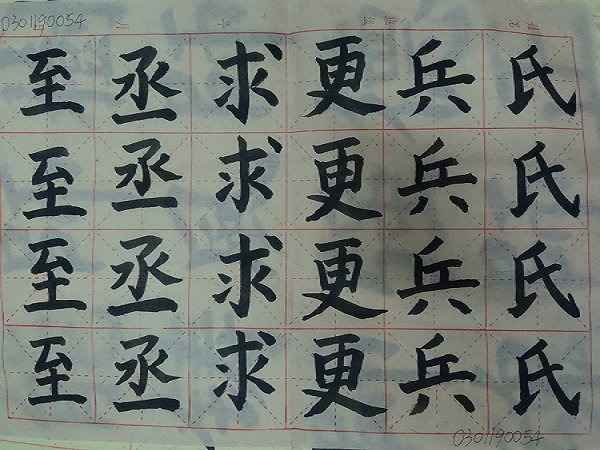 0301190054
氏氏氏氏
兵兵兵兵
更更更更
求求求求
丞丞丞丞
至至至至
0301190054